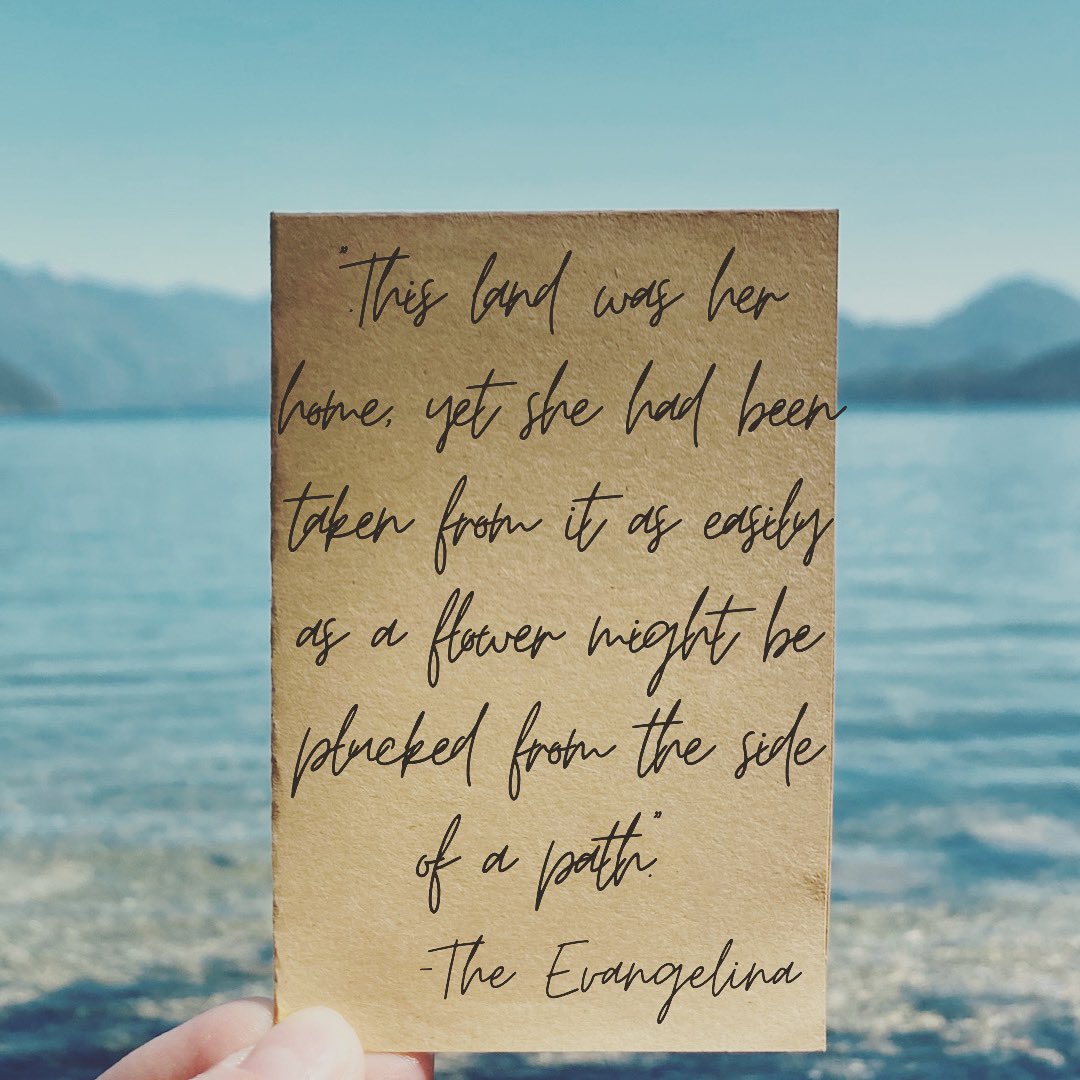 "This land was her
home, yet she had been
taken from it as easily
as a flower might be
plucked from the side
of a path."
-The Evangelina